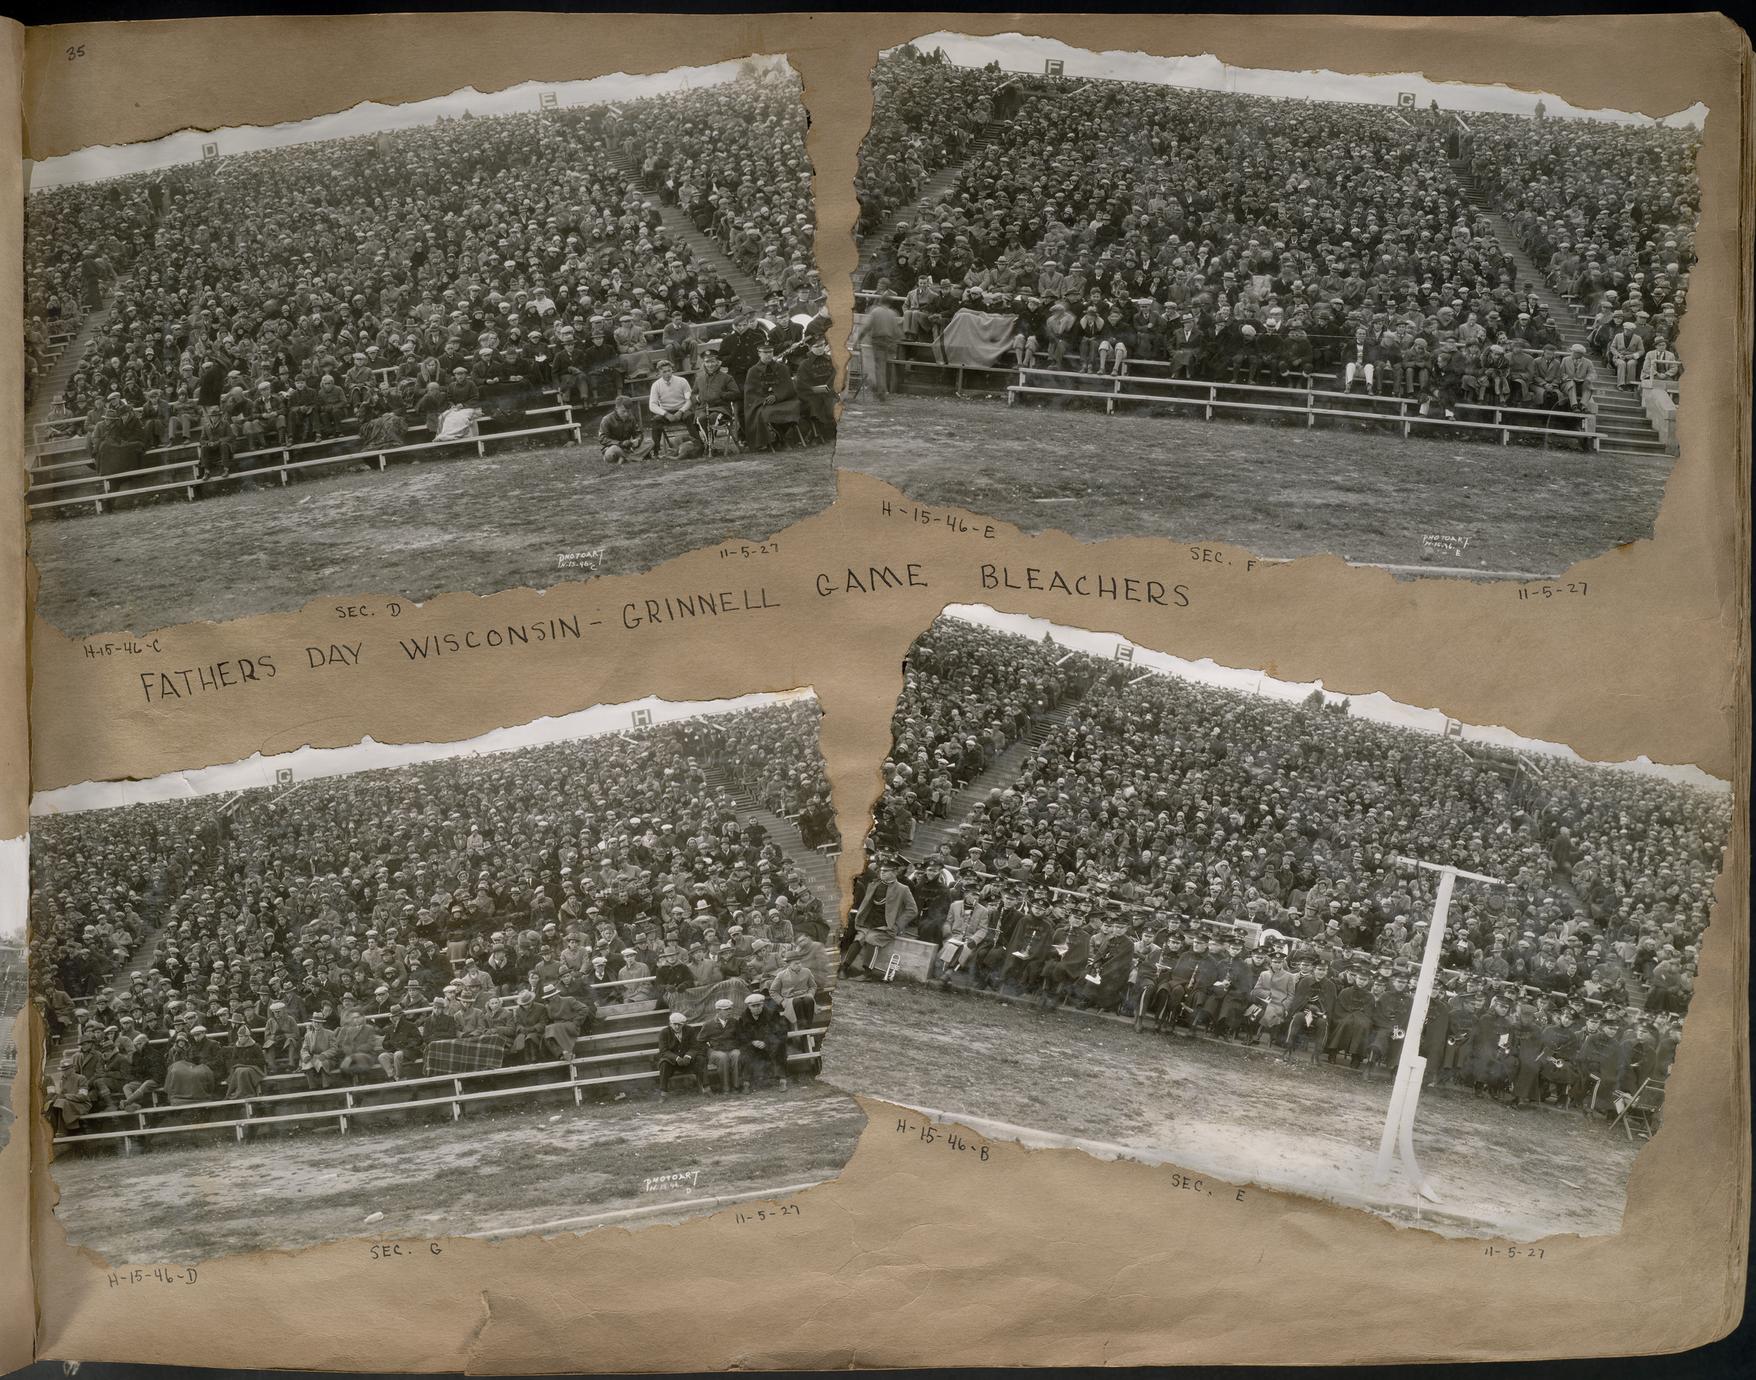 35
D
E
F
G
PHOTOART
H-15-46-C
11-5-27
SEC. D
H-15-46-C
H-15-46-E
PHOTOART
H-15-46-
E
SEC. F
11-5-27
FATHERS DAY WISCONSIN - GRINNELL GAME BLEACHERS
G
H
E
F
PHOTOART
H-15-46
D
11-5-27
SEC. G
H-15-46-D
H-15-46-B
SEC. E
11-5-27